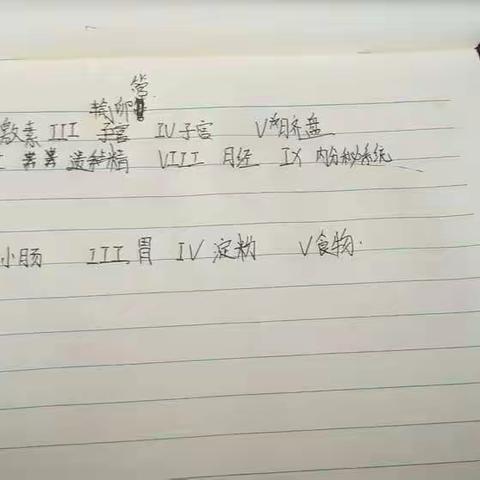 输卵管
激素 III 子宫 IV 子宫 V 胎盘
遗精 VIII 月经 IX 内分泌系统
小肠 III 胃 IV 淀粉 V 食物.